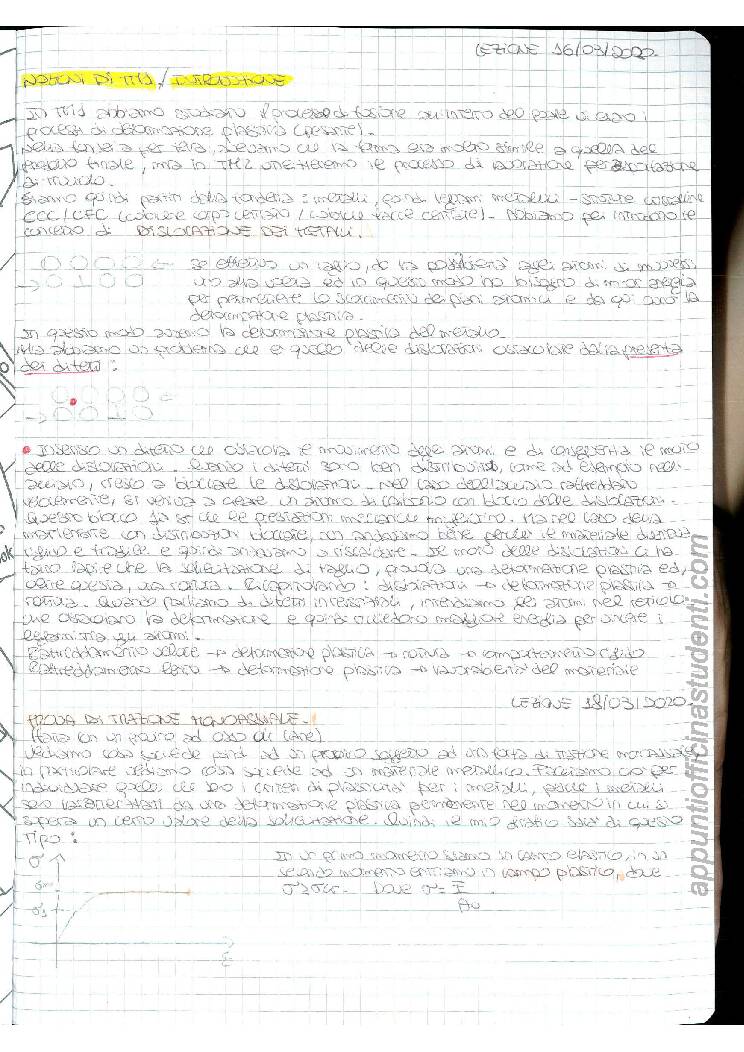 LEZIONE 16/03/2020.
NOZIONI DI TM1 / INTRODUZIONE
In TM1 abbiamo studiato il processo di fusione all'interno del quale vi erano i
processi di deformazione plastica (pesante).
della fonderia per terra, sapevamo che la forma era molto simile a quella del
prodotto finale, ma in TM2 vedremo le processo di lavorazione per asportazione
di truciolo.
Eravamo quindi partiti dalla fonderia: metalli, quindi legami metallici - strutture cristalline
CCC/CFC (cubiche corpo centrato / cubiche facce centrate). Abbiamo poi introdotto il
concetto di DISLOCAZIONE DEI METALLI.
se effettuo un taglio, do la possibilità agli atomi di muoversi
uno alla volta ed in questo modo ho bisogno di minor energia
per permettere lo scorrimento dei piani atomici e da qui avrò la
deformazione plastica.
In questo modo avremo la deformazione plastica del metallo.
Ma abbiamo un problema che è quello delle dislocazioni ostacolate dalla presenza
dei difetti:
Inserisco un difetto che ostacola il movimento degli atomi e di conseguenza il moto
delle dislocazioni. Quando i difetti sono ben distribuiti, come ad esempio negli
acciaio, riesco a bloccare le dislocazioni. Nel caso dell'acciaio raffreddato
velocemente, si veniva a creare un atomo di carbonio con blocco delle dislocazioni.
Questo blocco fa sì che le prestazioni meccaniche migliorino. Ma nel caso della
martensite con dislocazioni bloccate, non andiamo bene perché il materiale diventa
rigido e fragile e quindi andiamo a riscaldare. Il moto delle dislocazioni ci ha
fatto capire che la sollecitazione di taglio, provoca una deformazione plastica ed,
oltre questa, una rottura. Riepilogando: dislocazioni → deformazione plastica →
rottura. Quando parliamo di difetti interstiziali, intendiamo gli atomi nel reticolo
che ostacolano la deformazione e quindi richiedono maggiore energia per vincere i
legami tra gli atomi.
Raffreddamento veloce → deformazione plastica → rottura → comportamento rigido
Raffreddamento lento → deformazione plastica → lavorabilità del materiale
LEZIONE 18/03/2020.
PROVA DI TRAZIONE MONOASSIALE.
(fatta con un provino ad osso di cane)
Vediamo cosa succede quindi ad un provino soggetto ad una forza di trazione monoassiale
in particolare vediamo cosa succede ad un materiale metallico. Facciamo ciò per
individuare quelli che sono i criteri di plasticità per i metalli, poiché i metalli
sono caratterizzati da una deformazione plastica permanente nel momento in cui si
supera un certo valore della sollecitazione. Quindi il mio grafico sarà di questo
tipo:
In un primo momento siamo in campo elastico, in un
secondo momento entriamo in campo plastico, dove
dove σ = F
A₀
σ
ε
appuntiofficinastudenti.com